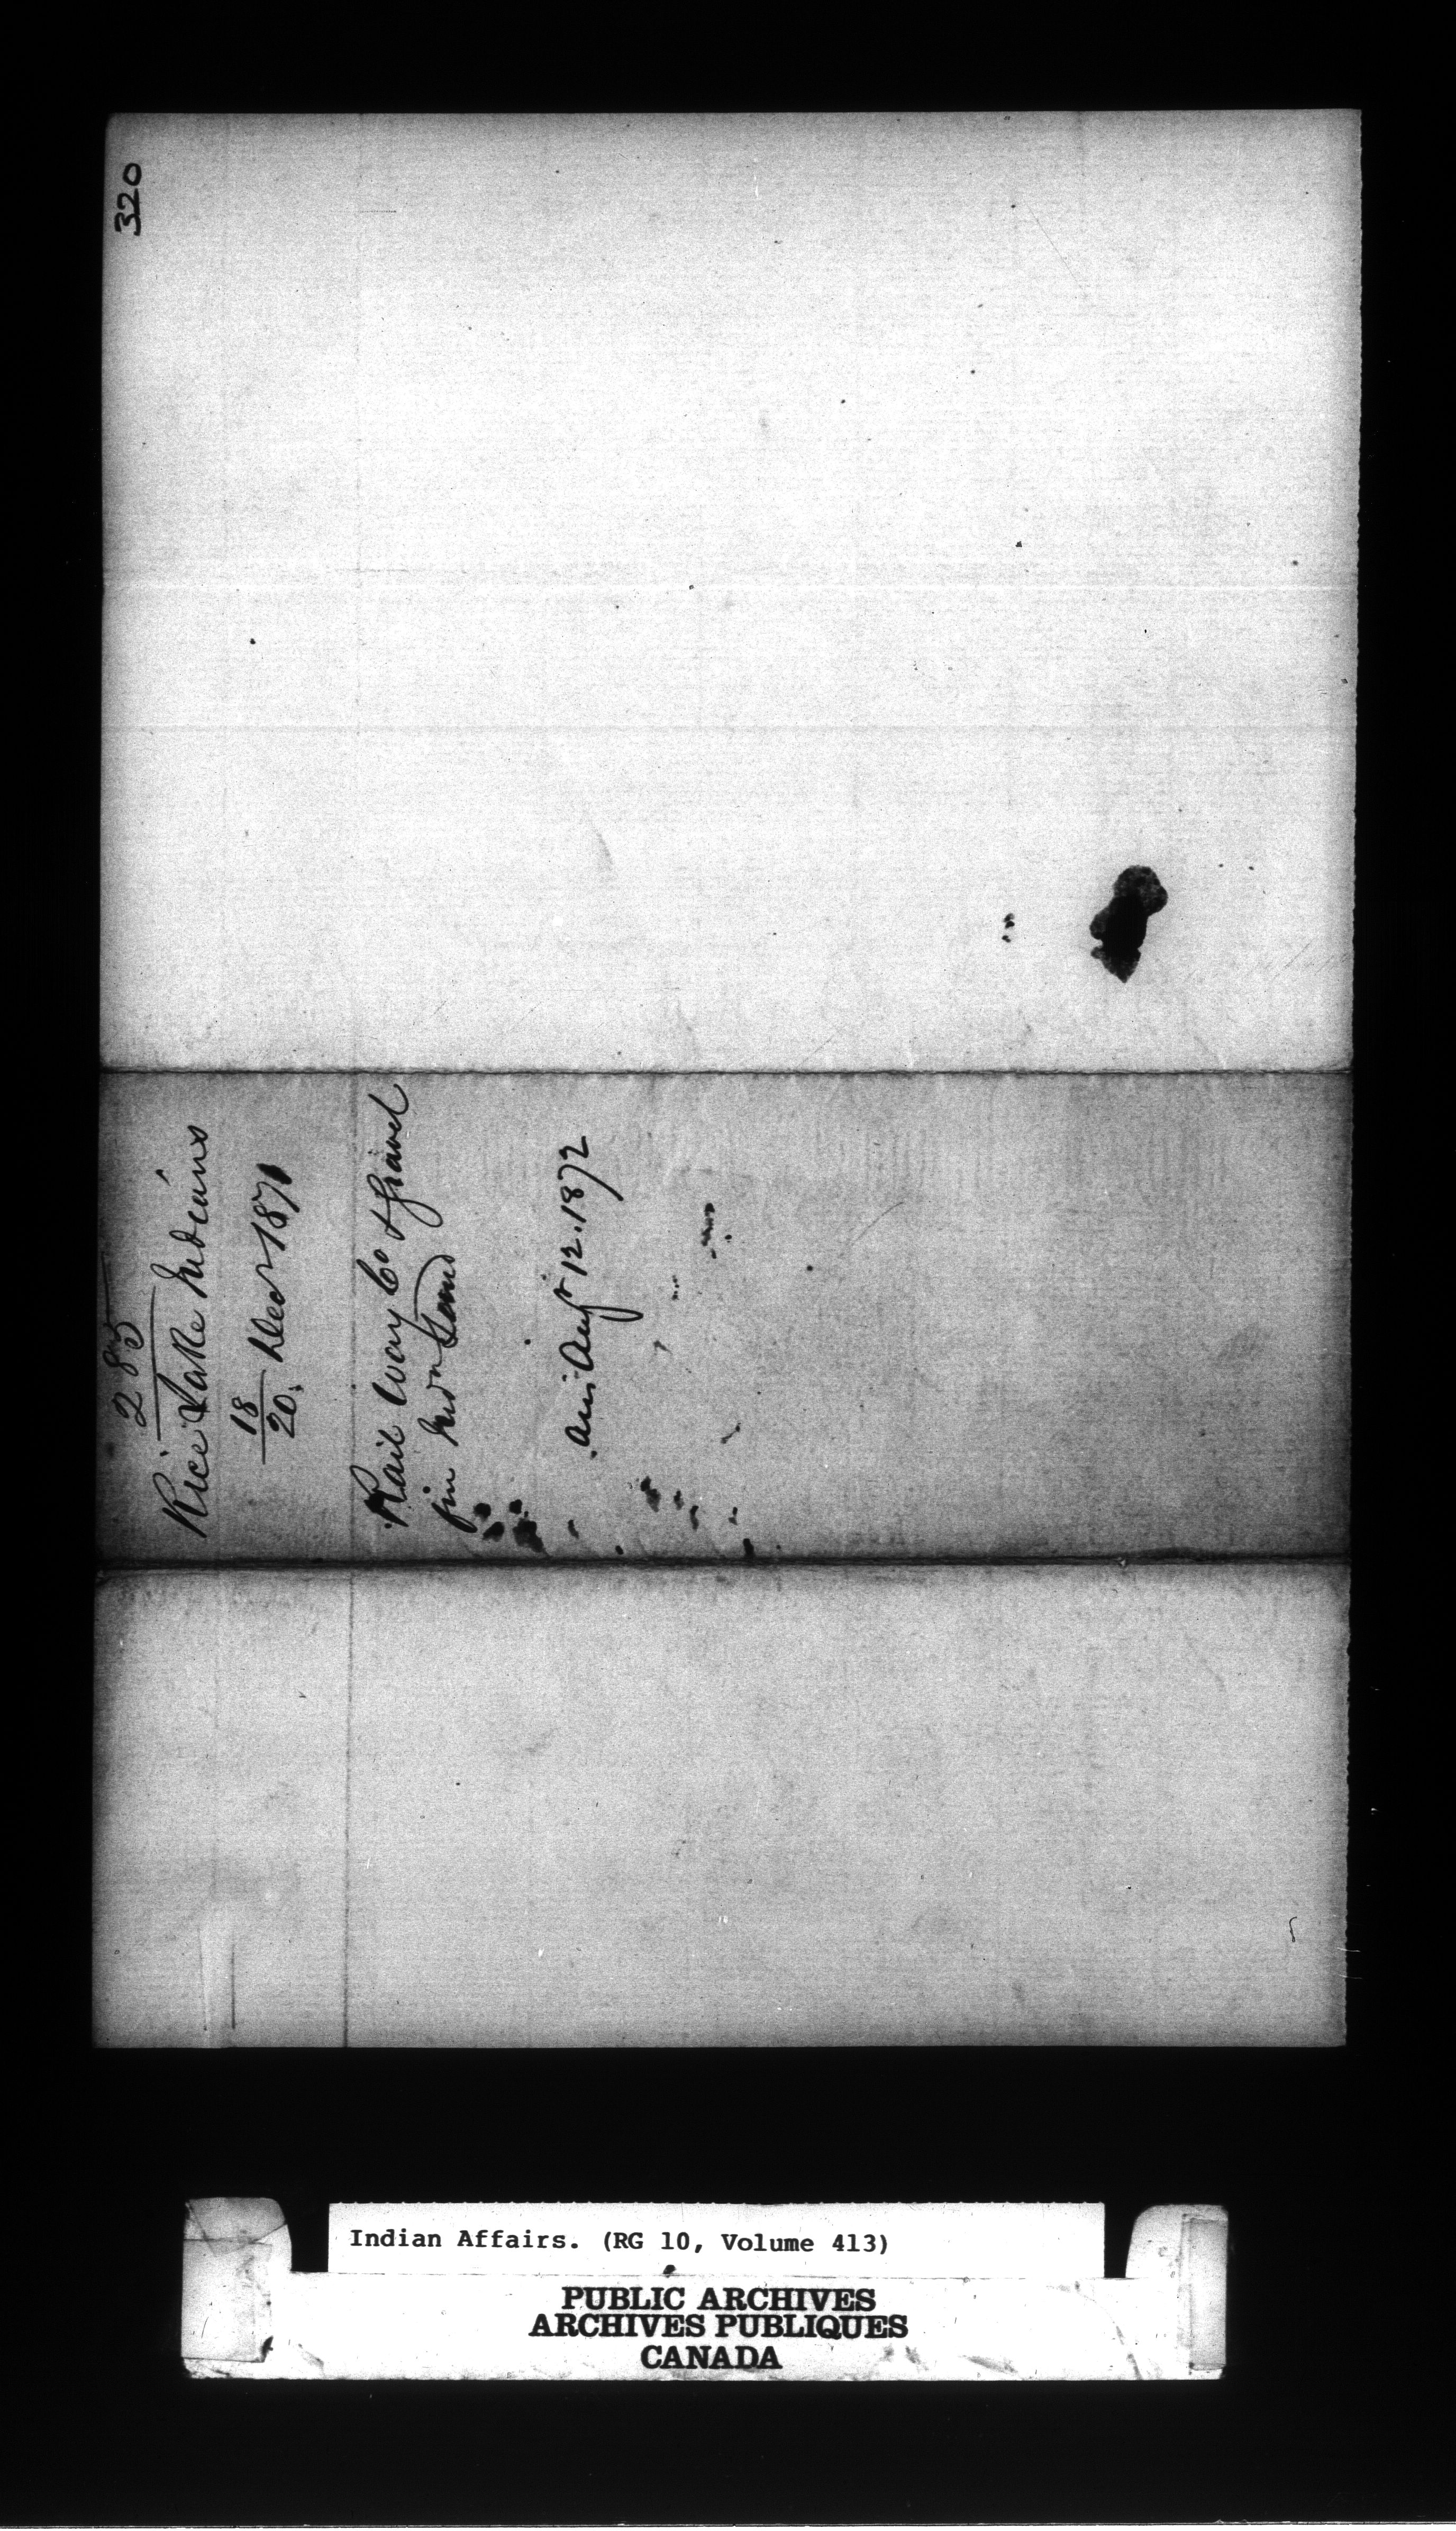 320
285
Rice Lake Indians
18
20. Decr 1871
Rail Way Co & Gravel
fm Indn Land
Ansd Augt 12. 1872
Indian Affairs. (RG 10, Volume 413)
PUBLIC ARCHIVES
ARCHIVES PUBLIQUES
CANADA